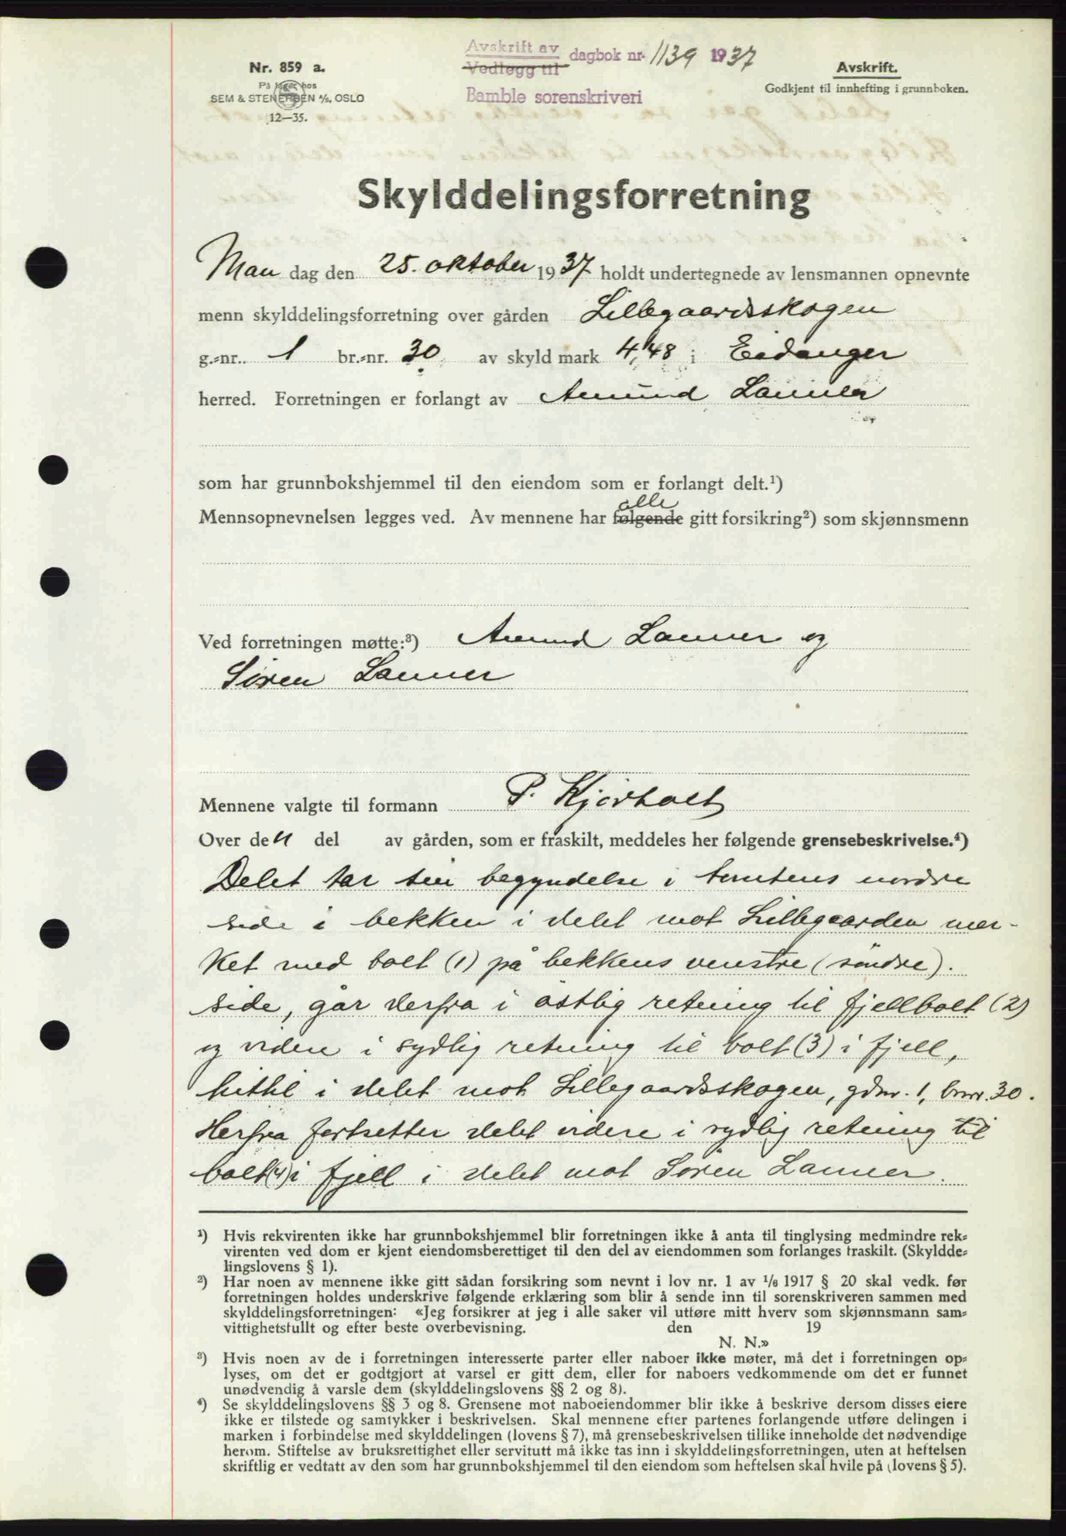 Nr. 859 a.
På lager hos
SEM & STENERSEN A/S, OSLO
12—35.
Avskrift av
Vedlegg til
dagbok nr. 1139 1937
Bamble sorenskriveri
Avskrift.
Godkjent til innhefting i grunnboken.
Skylddelingsforretning
Man dag den 25. oktober 1937 holdt undertegnede av lensmannen opnevnte
menn skylddelingsforretning over gården Lillegaardsskogen
g.=nr.. 1 br.=nr. 30 av skyld mark 4,48 i Eidanger
herred. Forretningen er forlangt av Amund Lanner
som har grunnbokshjemmel til den eiendom som er forlangt delt.¹)
alle
Mennsopnevnelsen legges ved. Av mennene har følgende gitt forsikring²) som skjønnsmenn
Ved forretningen møtte:³) Amund Lanner og
Søren Lanner
Mennene valgte til formann P. Kjørholt
Over den del av gården, som er fraskilt, meddeles her følgende grensebeskrivelse.⁴)
Delet tar sin begyndelse i tomtens nordre
side i bekken i delet mot Lillegaarden mer-
ket med bolt (1) på bekkens venstre (søndre).
side, går derfra i østlig retning til fjellbolt (2)
og videre i sydlig retning til bolt (3) i fjell,
hittil i delet mot Lillegaardsskogen, gdnr. 1, brnr. 30.
Herfra fortsetter delet videre i sydlig retning til
bolt (4) i fjell i delet mot Søren Lanner.
¹) Hvis rekvirenten ikke har grunnbokshjemmel blir forretningen ikke å anta til tinglysing medmindre rek=
virenten ved dom er kjent eiendomsberettiget til den del av eiendommen som forlanges fraskilt. (Skyldde=
lingslovens § 1).
²) Har noen av mennene ikke gitt sådan forsikring som nevnt i lov nr. 1 av 1/6 1917 § 20 skal vedk. før
forretningen holdes underskrive følgende erklæring som blir å sende inn til sorenskriveren sammen med
skylddelingsforretningen: «Jeg forsikrer at jeg i alle saker vil utføre mitt hverv som skjønnsmann sam=
vittighetsfullt og efter beste overbevisning. den 19
N. N.»
³) Hvis noen av de i forretningen interesserte parter eller naboer ikke møter, må det i forretningen op=
lyses, om det er godtgjort at varsel er gitt dem, eller for naboers vedkommende om det er funnet
unødvendig å varsle dem (skylddelingslovens §§ 2 og 8).
⁴) Se skylddelingslovens §§ 3 og 8. Grensene mot naboeiendommer blir ikke å beskrive dersom disses eiere
ikke er tilstede og samtykker i beskrivelsen. Skal mennene efter partenes forlangende utføre delingen i
marken i forbindelse med skylddelingen (lovens § 7), må grensebeskrivelsen tillike inneholde det nødvendige
herom. Stiftelse av bruksrettighet eller servitutt må ikke tas inn i skylddelingsforretningen, uten at heftelsen
skriftlig er vedtatt av den som har grunnbokshjemmel til den eiendom som heftelsen skal hvile på (lovens § 5).